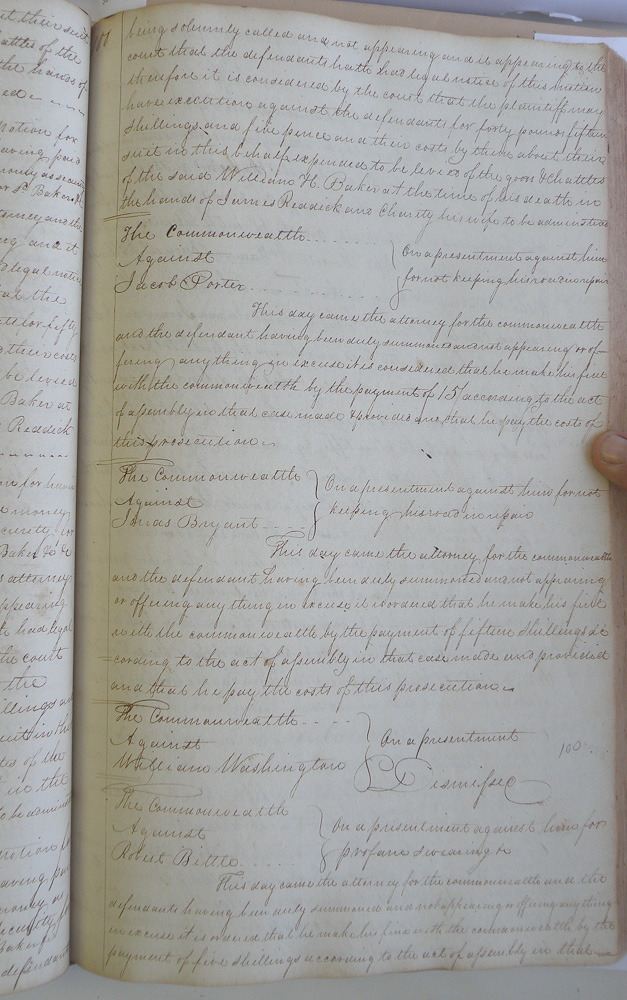 being solemnly called and not appearing and it appearing to the
court that the defendants hath had legal notice of this motion
therefore it is considered by the court that the plaintiff may
have execution against the defendants for forty pounds fifteen
shillings and five pence and their costs by them about their
suit in this behalf expended to be levied of the goods & chattles
of the said William H. Baker at the time of his death in
the hands of James Reddick and Charity his wife to be administred
The Commonwealth
Against
Jacob Porter
On a presentment against him
for not keeping his road in repair
This day came the attorney for the commonwealth
and the defendant having been duly summoned and not appearing or of-
fering anything in excuse it is considered that he make his fine
with the commonwealth by the payment of 15/ according to the act
of assembly in that case made & provided and that he pay the costs of
this prosecution
The Commonwealth
Against
Jonas Bryant
On a presentment against him for not
keeping his road in repair
This day came the attorney for the commonwealth
and the defendant having been duly summoned and not appearing
or offering any thing in excuse it is ordered that he make his fine
with the commonwealth by the payment of fifteen shillings ac
cording to the act of assembly in that case made and provided
and that he pay the costs of this prosecution
The Commonwealth
Against
William Washington
On a presentment
Dismissed
100
The Commonwealth
Against
Robert Bittle
On a presentment against him for
profane swearing &
This day came the attorney for the commonwealth and the
defendants having been duly summoned and not appearing or offering any thing
in excuse it is ordered that he make his fine with the commonwealth by the
payment of five shillings according to the act of assembly in that